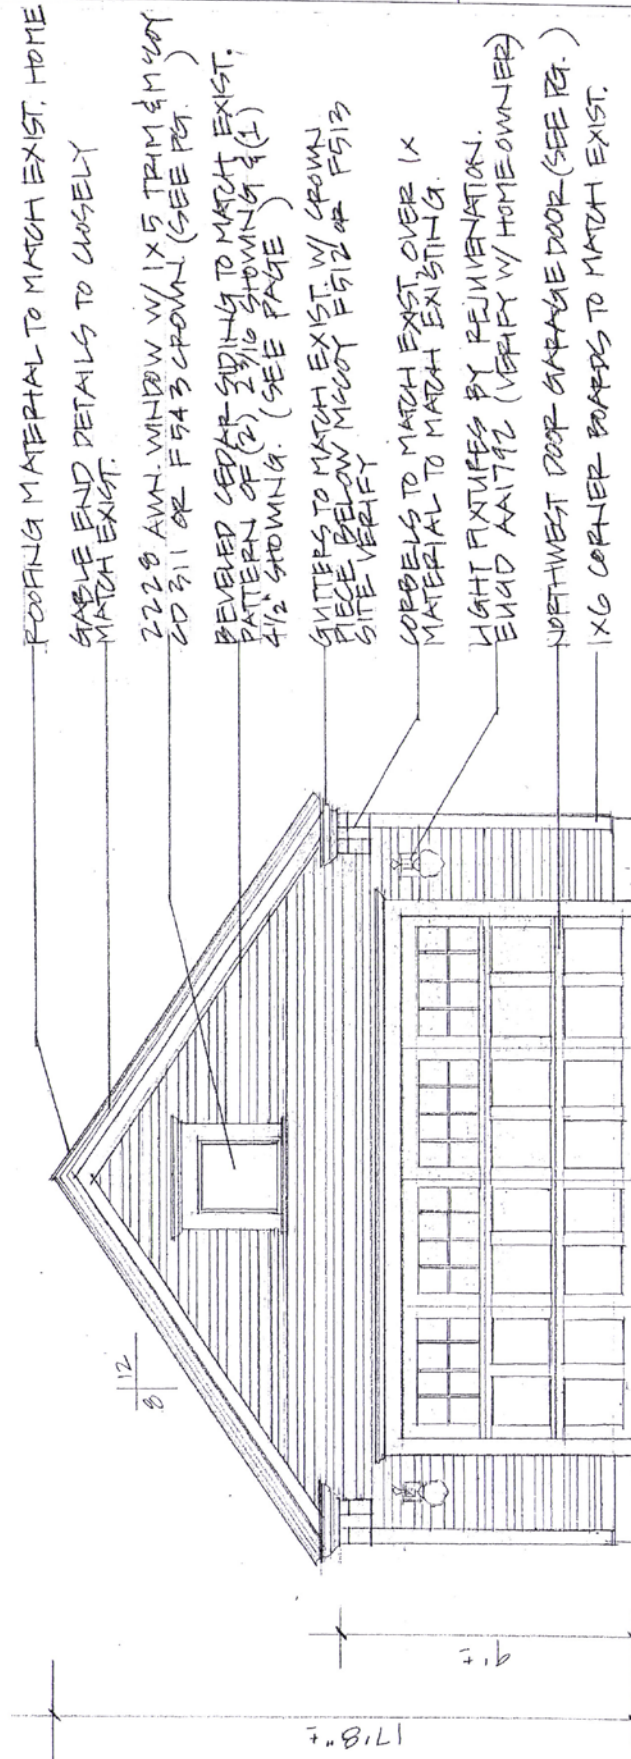 ROOFING MATERIAL TO MATCH EXIST. HOME
GABLE END DETAILS TO CLOSELY
MATCH EXIST.
2228 AWN. WINDOW W/ 1X5 TRIM & McCOY
CD 311 OR F543 CROWN (SEE PG. )
BEVELED CEDAR SIDING TO MATCH EXIST.
PATTERN OF (2) 2 3/16 SHOWING & (1)
4 1/2" SHOWING. (SEE PAGE )
GUTTERS TO MATCH EXIST. W/ CROWN
PIECE BELOW McCOY F512 OR F513
SITE VERIFY
CORBELS TO MATCH EXIST, OVER 1X
MATERIAL TO MATCH EXISTING.
LIGHT FIXTURES BY REJUVENATION.
AA1792 (VERIFY W/ HOMEOWNER)
NORTHWEST DOOR GARAGE DOOR (SEE PG. )
1X6 CORNER BOARDS TO MATCH EXIST.
12
8
9' ±
17'8" ±